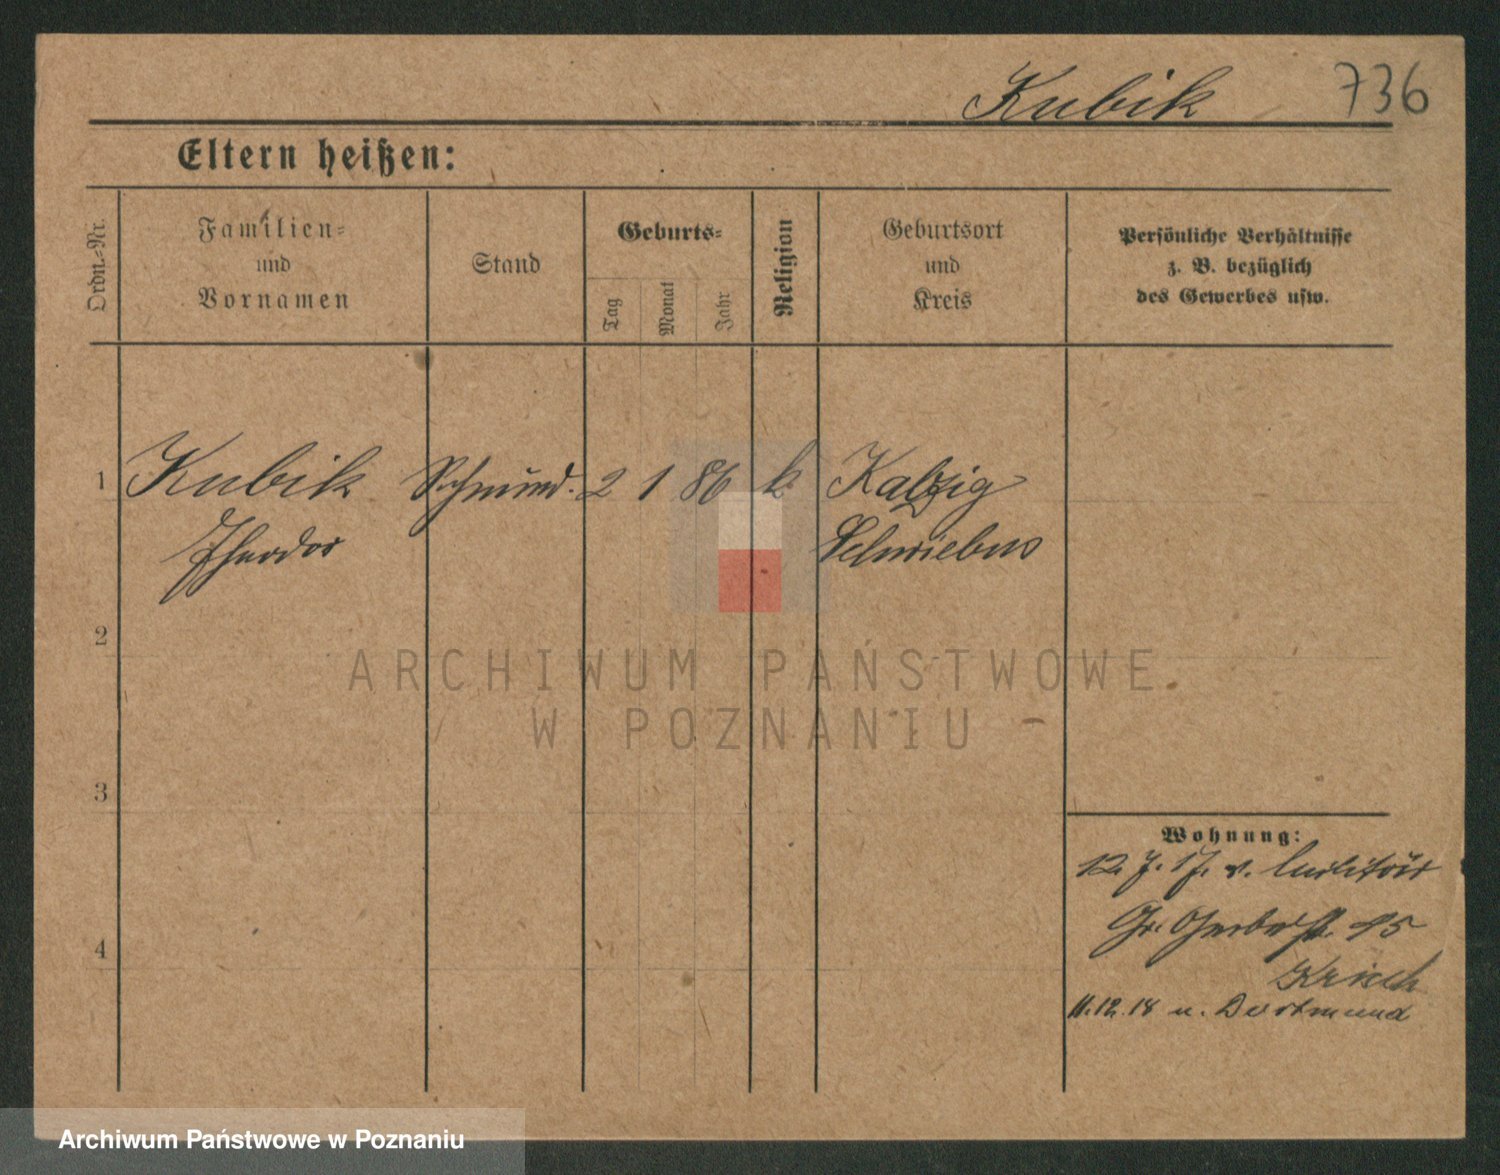 Kubik 736
Eltern heißen:
Ordn.-Nr.
Familien-
und
Vornamen
Stand
Geburts-
Tag
Monat
Jahr
Religion
Geburtsort
und
Kreis
Persönliche Verhältnisse
z. B. bezüglich
des Gewerbes usw.
1 Kubik 2 1 86 k. Kalzig
Theodor Schwiebus
2
ARCHIWUM PAŃSTWOWE
W POZNANIU
3
Wohnung:
12. 7. 17. v. Militär
Gr. Gerberstr. 45
4
11.12.18 n. Dortmund
Archiwum Państwowe w Poznaniu